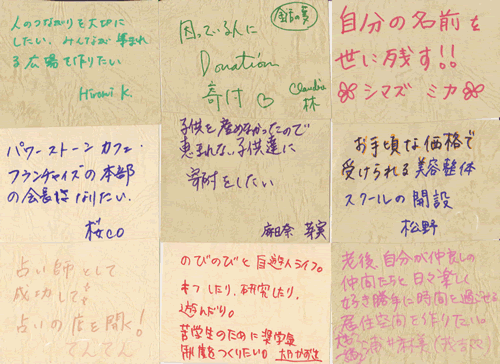 人のつながりを大切に
したい。みんなが集まれ
る広場を作りたい
Hiromi K.
困っている人に
Donation
寄付
Claudia
林
自分の名前を
世に残す!!
シマズ ミカ
パワーストーン カフェ・
フランチャイズの本部
の会長になりたい。
桜co
子供を産めなかったので
恵まれない子供達に
寄附をしたい
麻田奈 芽実
お手頃な価格で
受けられる美容整体
スクールの開設
松野
占い師として
成功して
占いの店を開く!
てんてん
のびのびと自遊人ライフ。
本フしたり、研究したり、
遊んだり。
苦学生のために奨学金
制度をつくりたい。
老後、自分が仲良しの
仲間たちと日々楽しく
好き勝手に時間を過ごせる
居住空間を作りたい。